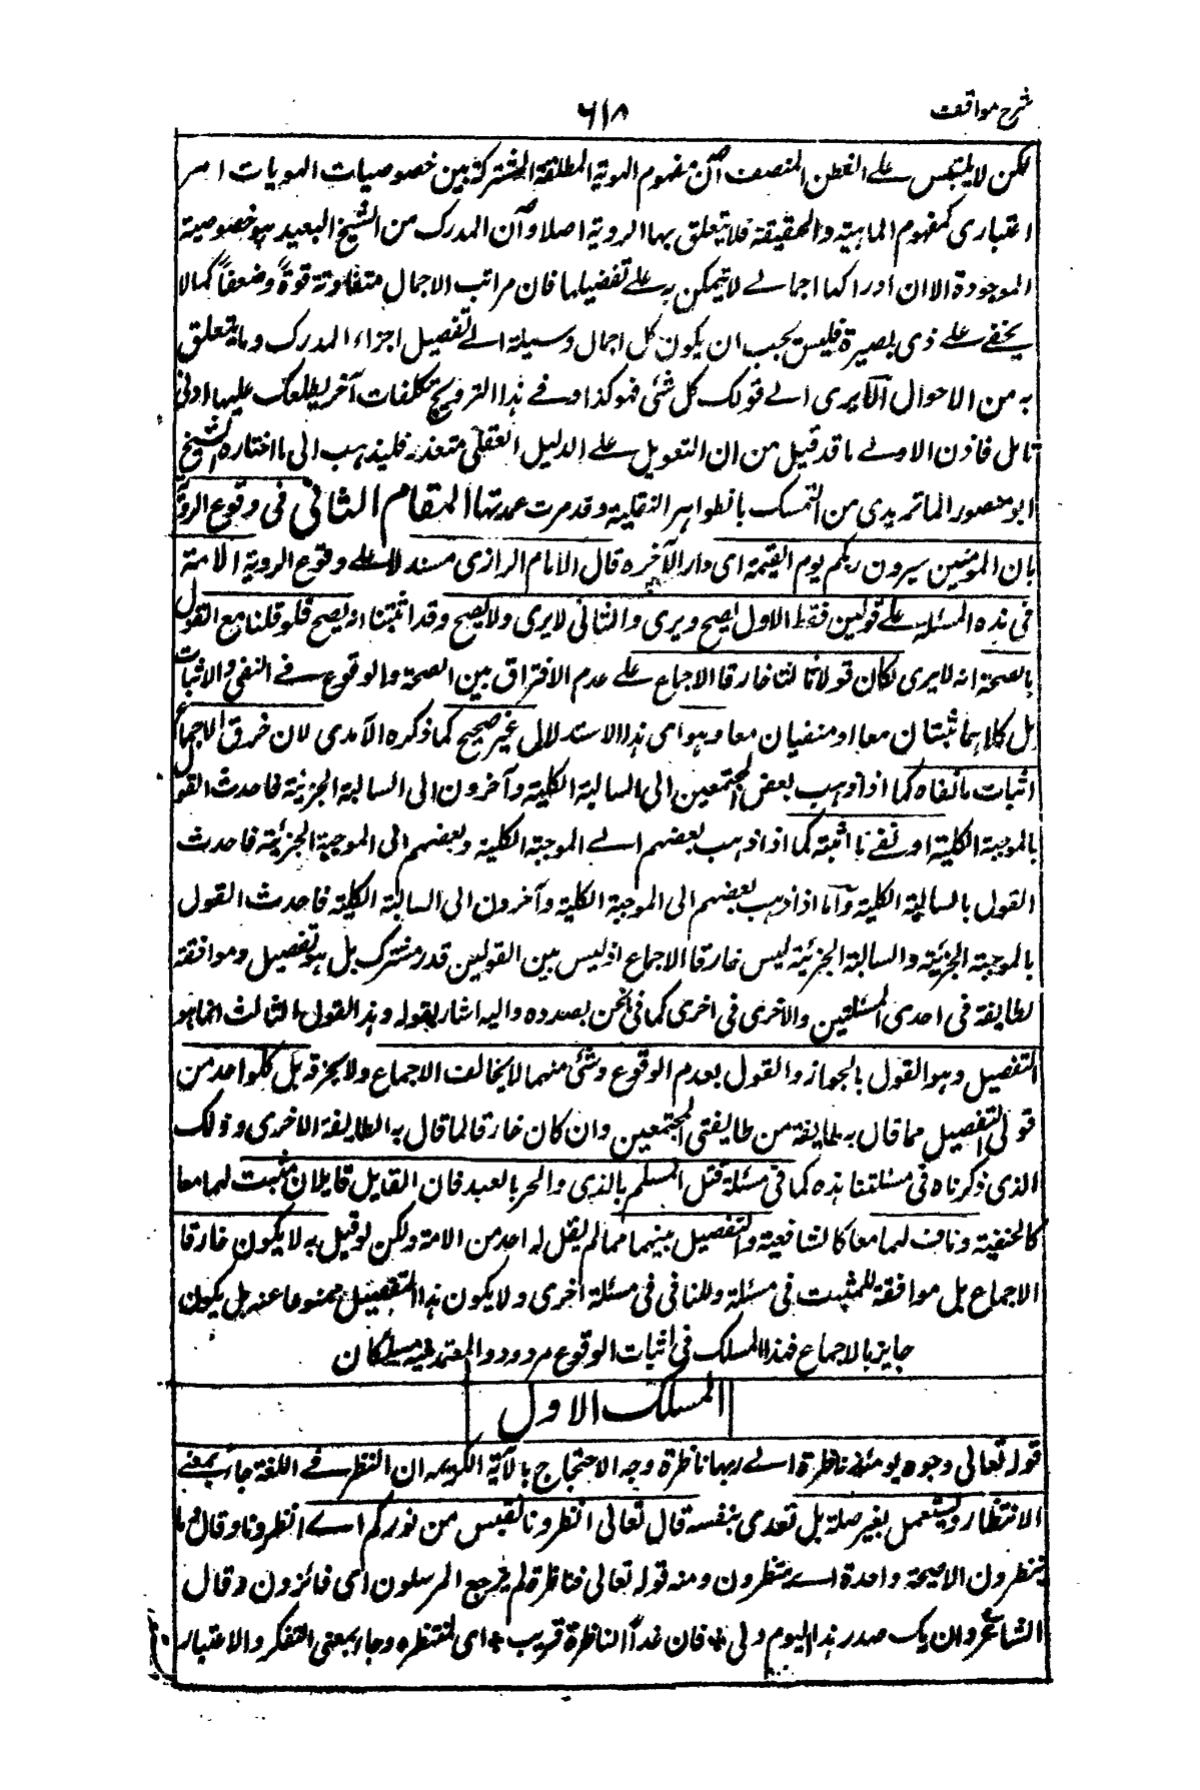 شرح مواقف
٦١٨
لكن لا يلتبس على الفطن المنصف ان مفهوم الهوية المطلقة المشتركة بين خصوصيات الهويات امر
اعتبارى كمفهوم الماهية والحقيقة فلا يتعلق بها الروية اصلا وان المدرك من الشبح البعيد هو خصوصية
الموجودة الا ان ادراكها اجمالى لا يتمكن به على تفضيلها فان مراتب الاجمال متفاوتة قوة وضعفا كما لا
يخفى على ذى بصيرة فليس يجب ان يكون كل اجمال وسيلة الى تفصيل اجزاء المدرك وما يتعلق
به من الاحوال الا يرى الى قولك كل شئ فهو كذا وفى هذا الترويج تكلفات آخر يطلعك عليها ادنى
تامل فاذن الاولى ما قد قيل من ان التعويل على الدليل العقلى متعذر فليذهب الى ما اختاره الشيخ
ابو منصور الماتريدى من التمسك بالظواهر النقلية وقد مرت عمدتها المقام الثانى فى وقوع الروية
بان المومنين سيرون ربهم يوم القيمة اى دار الآخره قال الامام الرازى مستدلا على وقوع الروية الامة
فى هذه المسئلة على قولين فقط الاول يصح ويرى والثانى لا يرى ولا يصح وقد اثبتنا انه يصح فلو قلنا مع القول
بالصحة انه لا يرى لكان قولا ثالثا خارقا الاجماع على عدم الافتراق بين الصحة والوقوع فى النفى والاثبات
بل كلاهما مثبتان معا او منفيان معا وهو اى هذا الاستدلال غير صحيح كما ذكره الآمدى لان خرق الاجماع
اثبات ما نفاه كما اذا ذهب بعض المجتمعين الى السالبة الكلية وآخرون الى السالبة الجزئية فاحدث القول
بالموجبة الكلية او نفى ما اثبته كما اذا ذهب بعضهم الى الموجبة الكلية وبعضهم الى الموجبة الجزئية فاحدث
القول بالسالبة الكلية وآما اذا ذهب بعضهم الى الموجبة الكلية وآخرون الى السالبة الكلية فاحدث القول
بالموجبة الجزئية والسالبة الجزئية ليس خارقا الاجماع اذ ليس بين القولين قدر مشترك بل هو تفصيل وموافقة
لطايفة فى احدى المسئلتين والاخرى فى اخرى كما فى نحن بصدده واليه اشار بقوله وهذا القول الثالث انما هو
التفصيل وهو القول بالجواز والقول بعدم الوقوع وشئ منهما لا يخالف الاجماع ولا يخرقه بل كلواحد من
قولى التفصيل مما قال به طايفة من طايفتى المجتمعين وان كان خارقا لما قال به الطايفة الاخرى وذلك
الذى ذكرناه فى مسئلتنا هذه كما فى مسئلة قتل المسلم بالذمى والحر بالعبد فان القايل قايلان مثبت لهما معا
كالحنفية وناف لهما معا كالشافعية والتفصيل بينهما مما لم يقل له احد من الامة ولكن لو قيل به لا يكون خارقا
الاجماع بل موافقة للمثبت فى مسئلة وللنافى فى مسئلة اخرى ولا يكون هذا التفصيل ممنوعا عنه بل يكون
جايز بالاجماع فهذا المسلك فى اثبات الوقوع مردود والمعتمد فيه مسلكان
المسلك الاول
قوله تعالى وجوه يومئذ ناظرة الى ربها ناظرة وجه الاحتجاج بالآية الكريمه ان النظر فى اللغة جاء بمعنى
الانتظار ويستعمل بغير صلة بل تعدى بنفسه قال تعالى انظرونا نقتبس من نوركم اى انتظرونا وقال ما
ينظرون الا صيحة واحدة اى ينتظرون ومنه قوله تعالى فناظرة لم يرجع المرسلون اى فائزون وقال
الشاعر وان يك صدر هذا اليوم ولى * فان غدا الناظرة قريب * اى لمنتظره وجاء بمعنى التفكر والاعتبار